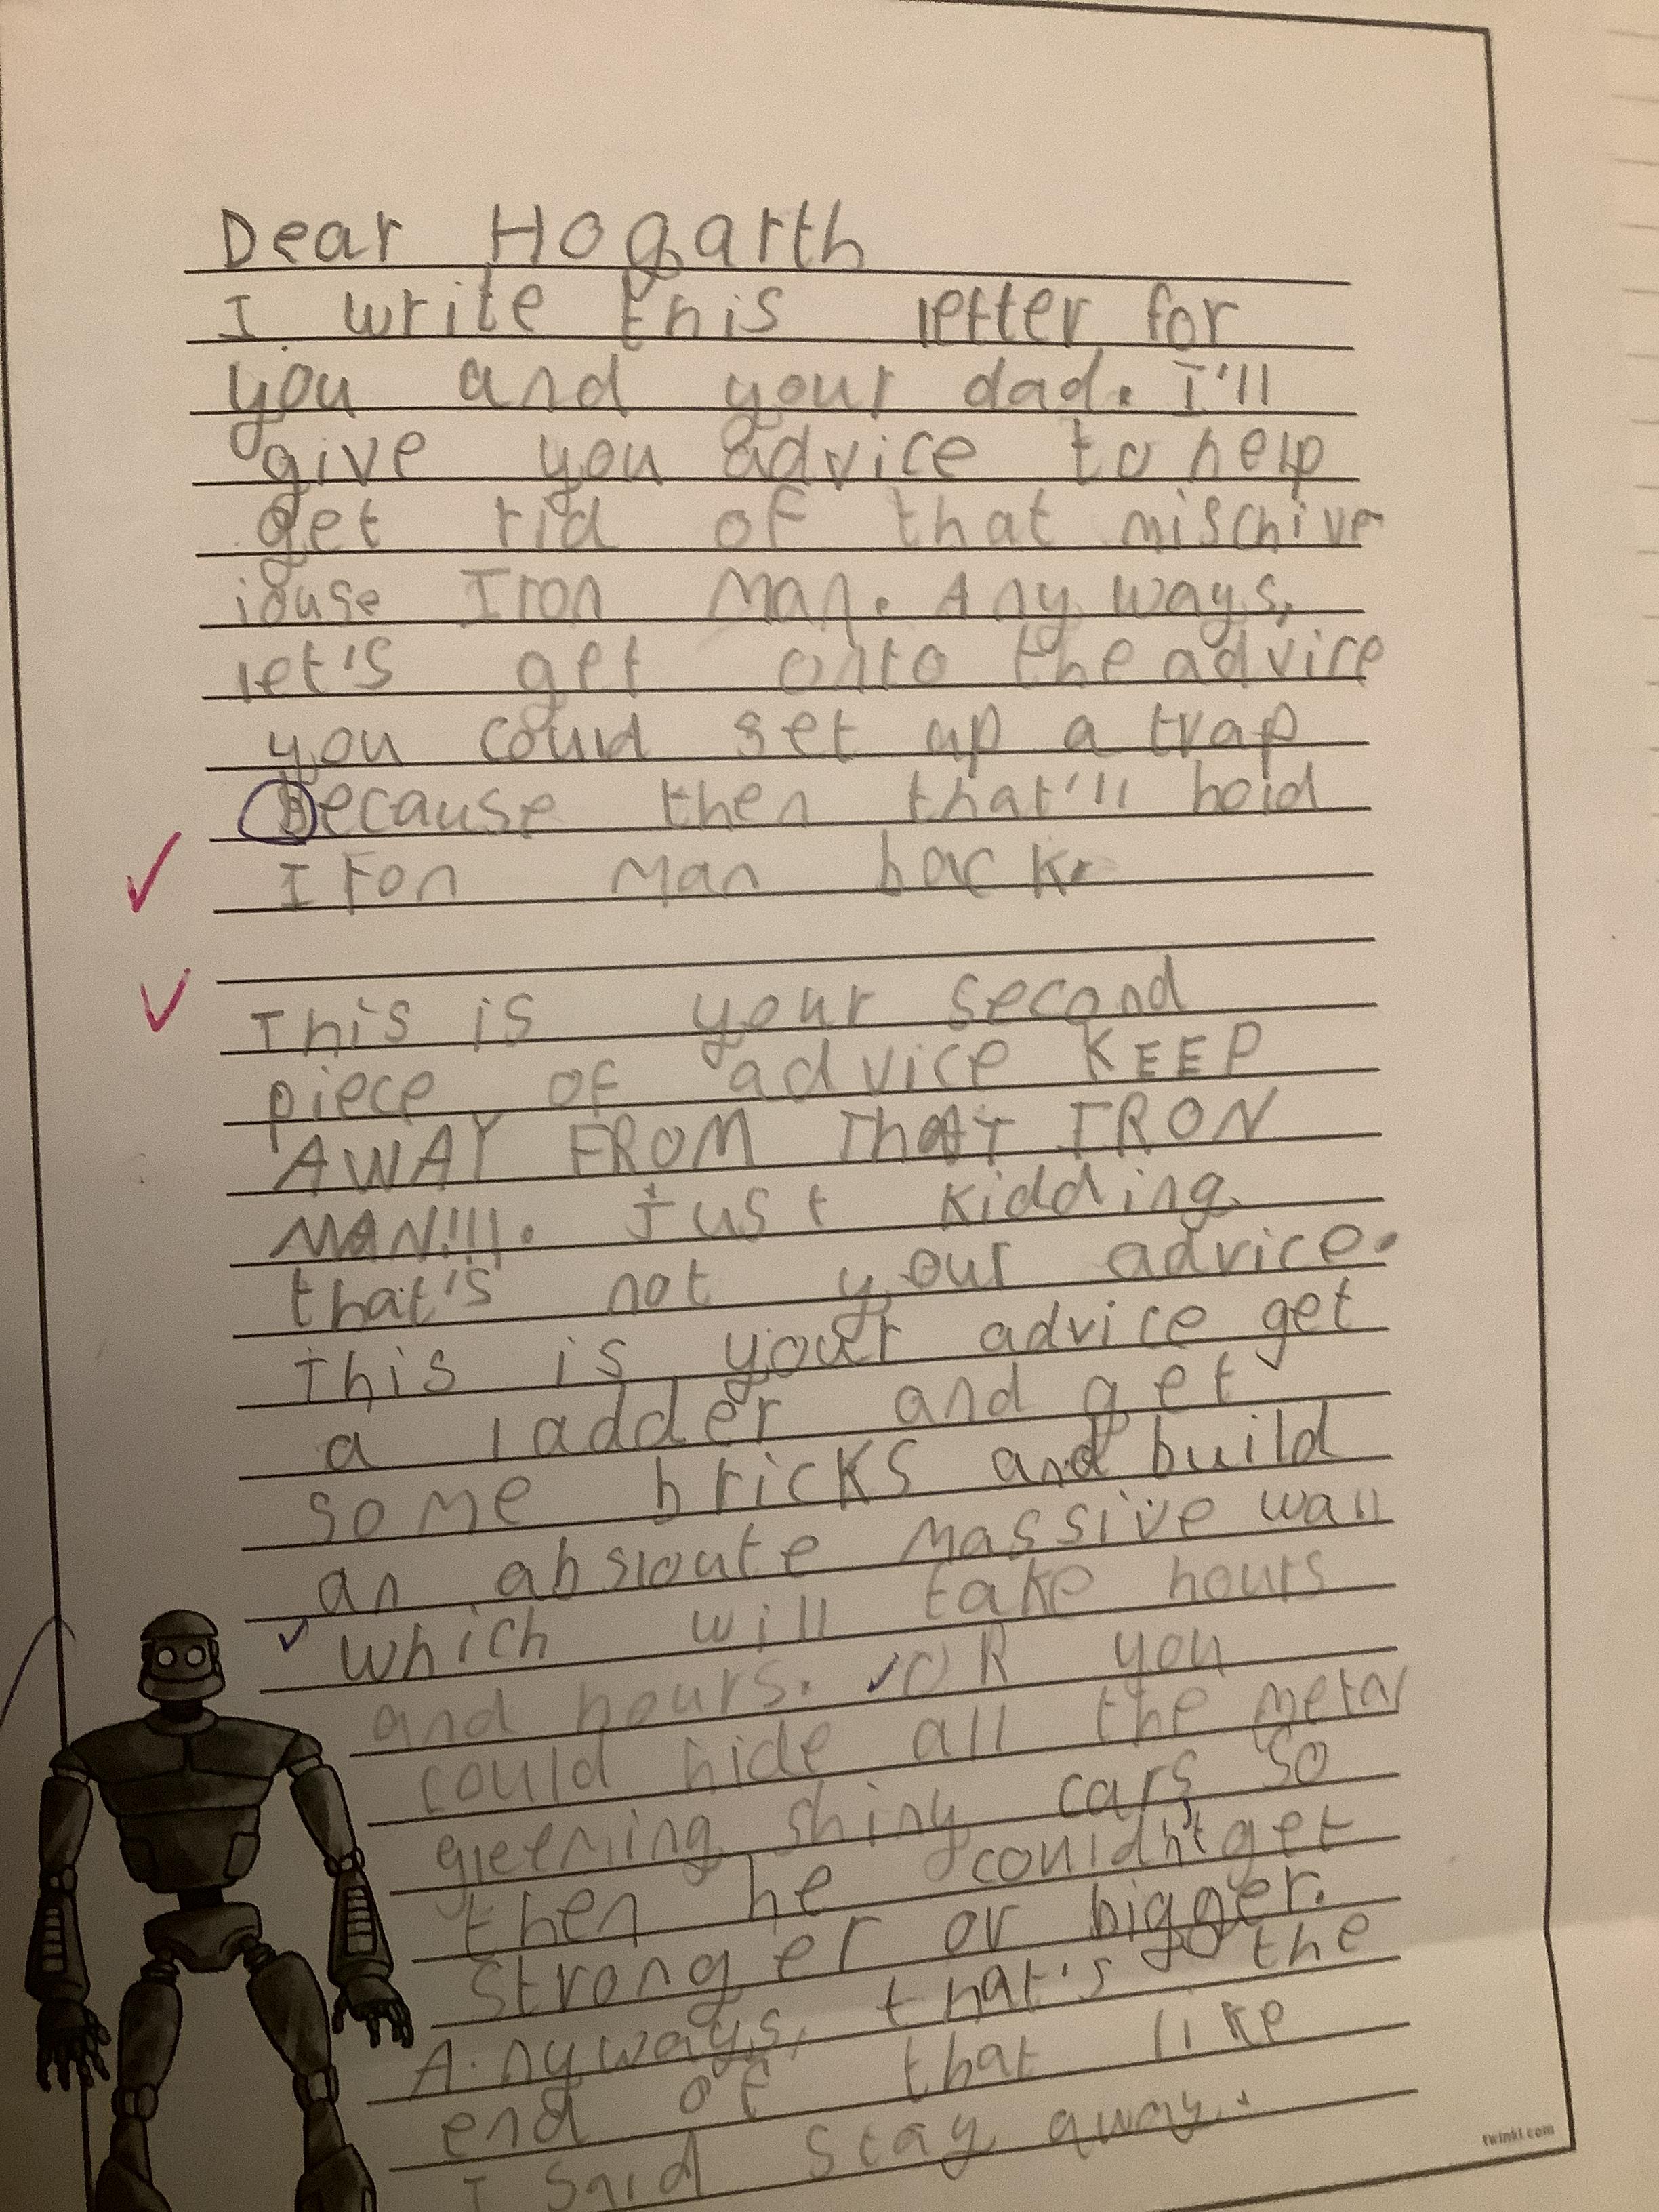 Dear Hogarth
I write this letter for
you and your dad. I'll
give you advice to help
get rid of that mischive
iouse Iron Man. Any ways,
let's get onto the advice
you could set up a trap
Because then that'll hold
Iron Man back.
This is your second
piece of advice KEEP
AWAY FROM THAT IRON
MAN!!!. Just kidding
that's not your advice.
This is your advice get
a ladder and get
some bricks and build
an absloute massive wall
which will take hours
and hours. OR you
could hide all the metal
gleeming shiny cars, so
then he couldn't get
stronger or bigger.
Anyways, that's the
end of that like
I said stay away.
twinkl.com